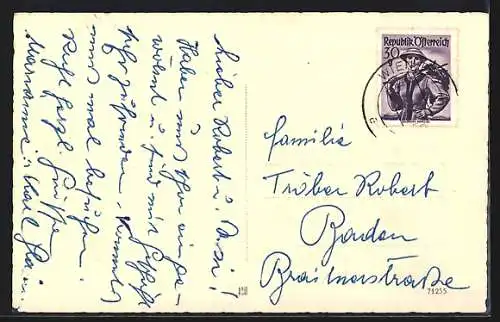 Lieber Robert u. Resi!
Haben uns schon einge-
wöhnt u. sind mit
sehr zufrieden. Kommt
uns mal besuchen.
Recht herzl. Grüße
Marianne u. Karl
Republik Österreich
30
WIEN
Familie
Tröber Robert
Baden
Braitnerstraße
71255